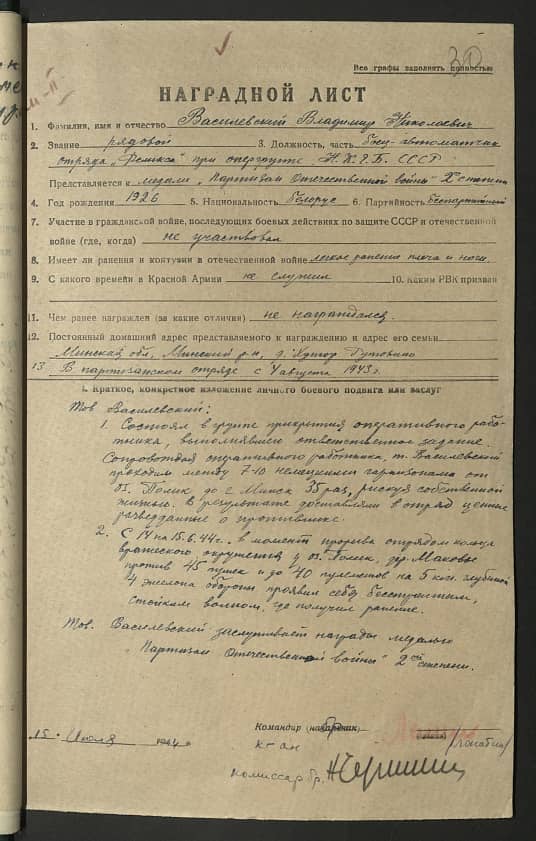 Все графы заполнять полностью
НАГРАДНОЙ ЛИСТ
1. Фамилия, имя и отчество Василевский Владимир Николаевич
2. Звание рядовой 3. Должность, часть боец-автоматчик
отряда "Фемикса" при опергруппе Н.К.Г.Б. СССР
Представляется к медали "Партизан Отечественной войны" 2й степени
4. Год рождения 1926 5. Национальность белорус 6. Партийность беспартийный
7. Участие в гражданской войне, последующих боевых действиях по защите СССР и отечественной
войне (где, когда) не участвовал
8. Имеет ли ранения и контузии в отечественной войне легкое ранение плеча и ноги.
9. С какого времени в Красной Армии не служил 10. Каким РВК призван
11. Чем ранее награжден (за какие отличия) не награждался.
12. Постоянный домашний адрес представляемого к награждению и адрес его семьи
Минская обл, Минский р-н, д. Хутор
13. В партизанском отряде с 4 августа 1943 г.
I. Краткое, конкретное изложение личного боевого подвига или заслуг
Тов Василевский:
1. Состоял в группе прикрытия оперативного работ-
ника, выполнявшего ответственное задание.
Сопровождая оперативного работника, т. Василевский
проходил между 7-10 немецкими гарнизонами от
оз. Полик до г. Минск 35 раз, рискуя собственной
жизнью. В результате доставляли в отряд ценные
разведданные о противнике.
2. С 14 на 15.6.44 г. в момент прорыва отрядом кольца
вражеского окружения у оз. Полик, дер. Маковье
против 45 пушек и до 40 пулеметов на 5 км. глубиной
4 эшелона обороны проявил себя бесстрашным,
стойким воином, где получил ранение.
Тов. Василевский заслуживает награды медалью
"Партизан Отечественной войны" 2ой степени.
15 Июля 1944
Командир
комиссар бр.